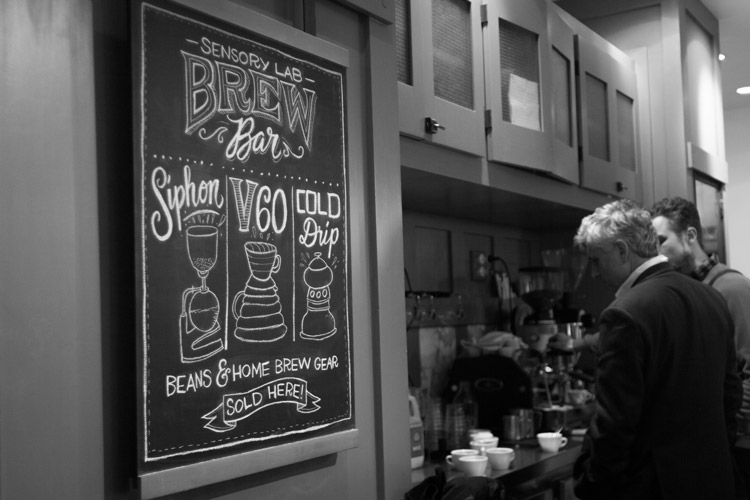 SENSORY LAB
BREW
Bar
Siphon
V60
COLD
Drip
BEANS & HOME BREW GEAR
SOLD HERE!